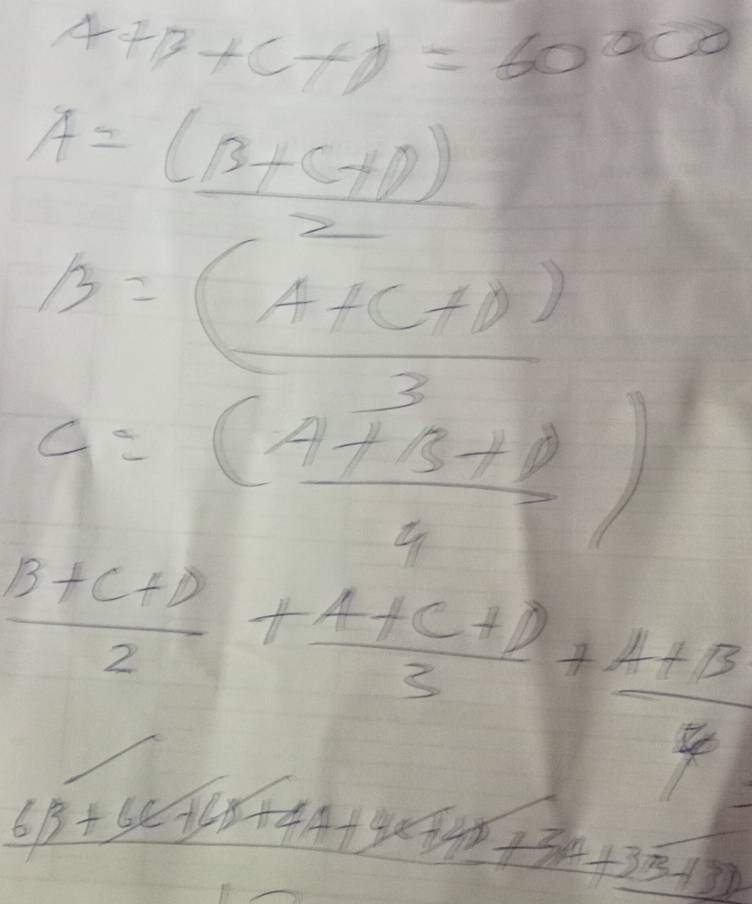 A+B+C+D = 60000
A = (B+C+D)
2
B = (A+C+D)
3
C = (A+B+D)
4
B+C+D + A+C+D + A+B
2 3 4
6B+6C+6D+4A+4C+4D+3A+3B+3D
12